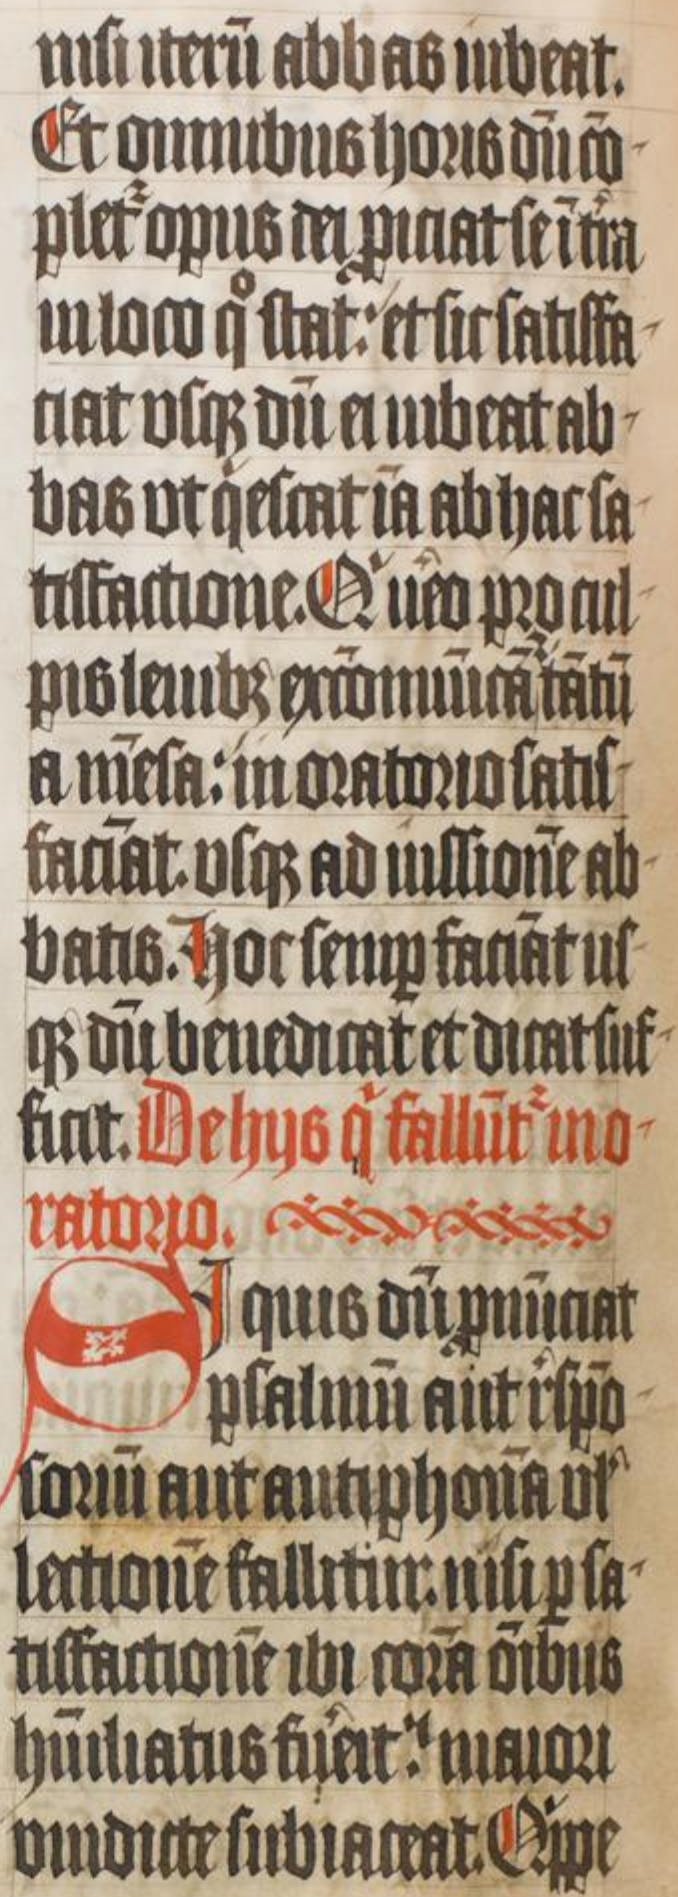 nisi iterū abbas iubeat.
Et omnibus horis dū cō-
plet᷑ opus dei ꝓiciat se ī t̄ra
in loco qͦ stat: et sic satisfa-
ciat vsqꝫ dū ei iubeat ab-
bas vt qͥescat iā ab hac sa-
tisfactione. Qͥ u̅o pro cul-
pis leuibꝫ excōmūicāt᷑ tātū
a mēsa: in oratorio satis-
faciāt. vsqꝫ ad iussionē ab-
batis. Hoc semꝑ faciāt us-
qꝫ dū benedicat et dicat suf-
ficit. De hijs qͥ fallūt᷑ in o-
ratorio.
SI quis dū ꝓnūciat
psalmū aut rͥspō-
soriū aut antiphonā vl̓
lectionē fallitur. nisi ꝑ sa-
tisfactionē ibi corā ōibus
hūiliatus fu̅it: maiori
vindicte subiaceat. Qͥppe